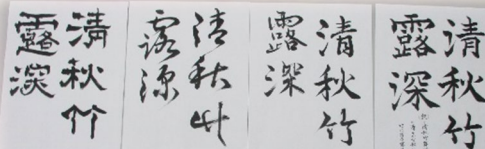 清秋竹
露深
清秋竹
露深
清秋竹
露深
清秋竹
露深